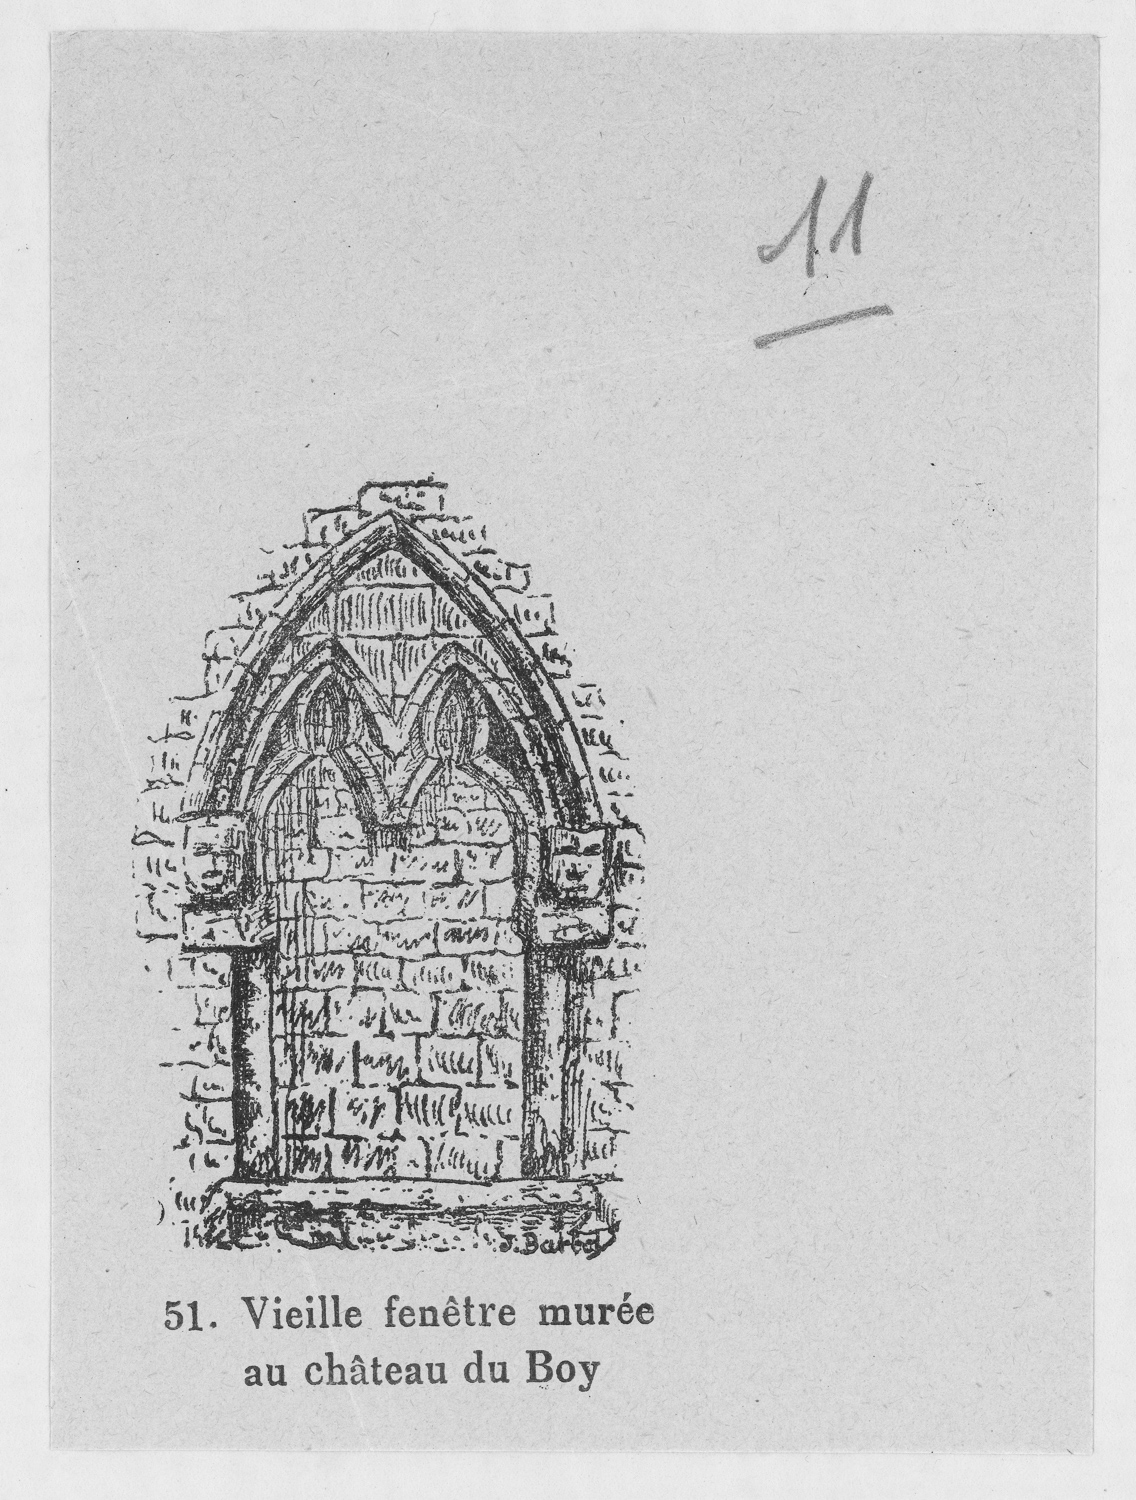 11
51. Vieille fenêtre murée
au château du Boy